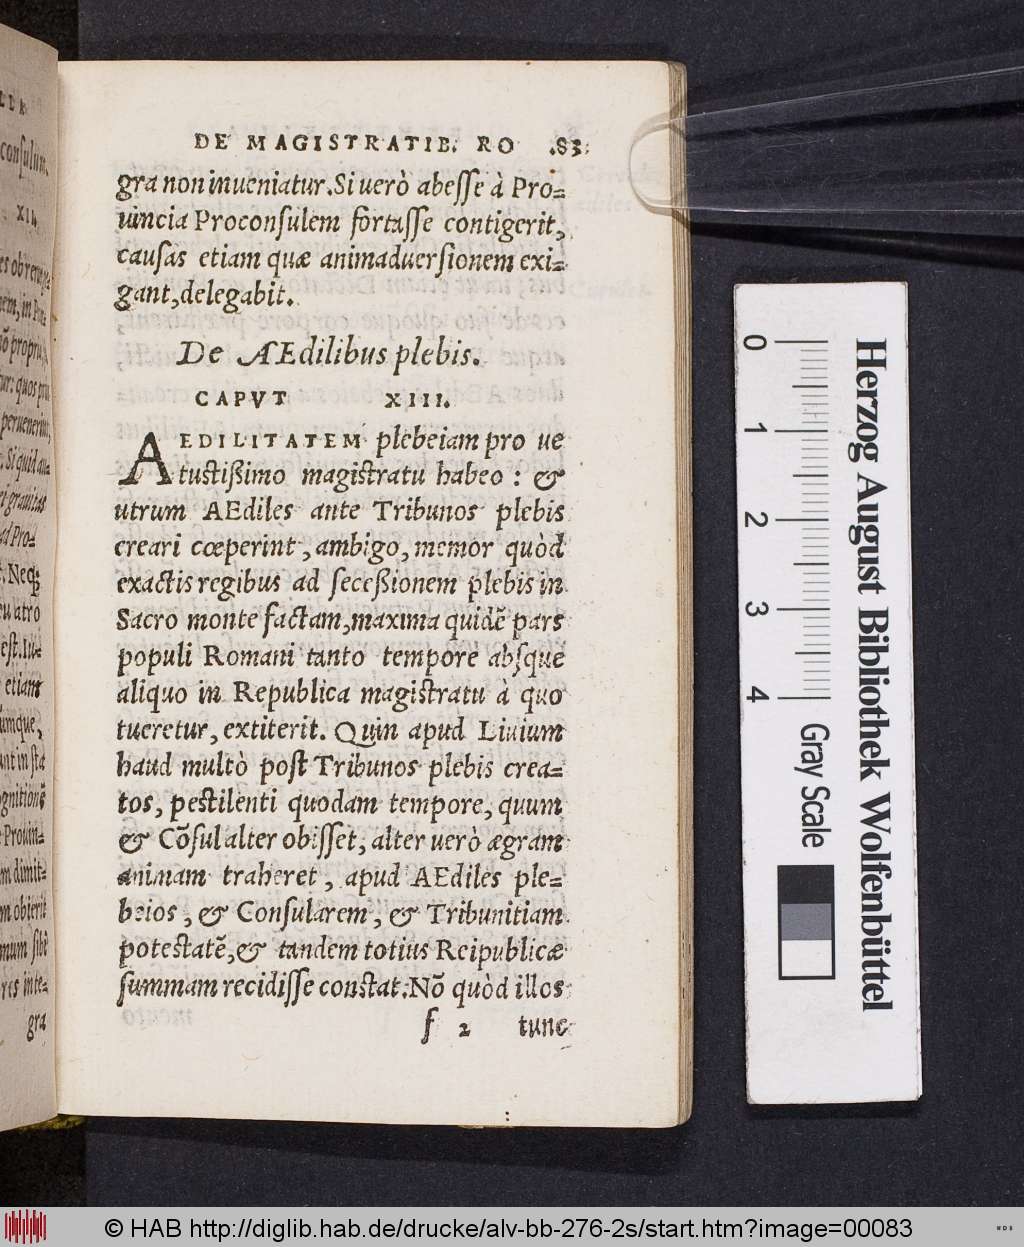 DE MAGISTRATIB. RO .83.
gra non inueniatur. Si uerò abesse à Pro-
uincia Proconsulem fortasse contigerit,
causas etiam quæ animaduersionem exi-
gant, delegabit.
De AEdilibus plebis.
CAPVT XIII.
AEDILITATEM plebeiam pro ue
tustißimo magistratu habeo : &
utrum AEdiles ante Tribunos plebis
creari cœperint, ambigo, memor quòd
exactis regibus ad seceßionem plebis in
Sacro monte factam, maxima quidẽ pars
populi Romani tanto tempore absque
aliquo in Republica magistratu à quo
tueretur, extiterit. Quin apud Liuium
haud multò post Tribunos plebis crea-
tos, pestilenti quodam tempore, quum
& Cõsul alter obisset, alter uerò ægram
animam traheret, apud AEdiles ple-
beios, & Consularem, & Tribunitiam
potestatẽ, & tandem totius Reipublicæ
summam recidisse constat. Nõ quòd illos
f 2 tunc
consulum.
XII.
ad Pro-
est. Iu-
etiam
umque,
Prouin-
m dimit-
m obierit
mum sibi
res inte-
gra
0 1 2 3 4
Gray Scale
Herzog August Bibliothek Wolfenbüttel
© HAB http://diglib.hab.de/drucke/alv-bb-276-2s/start.htm?image=00083